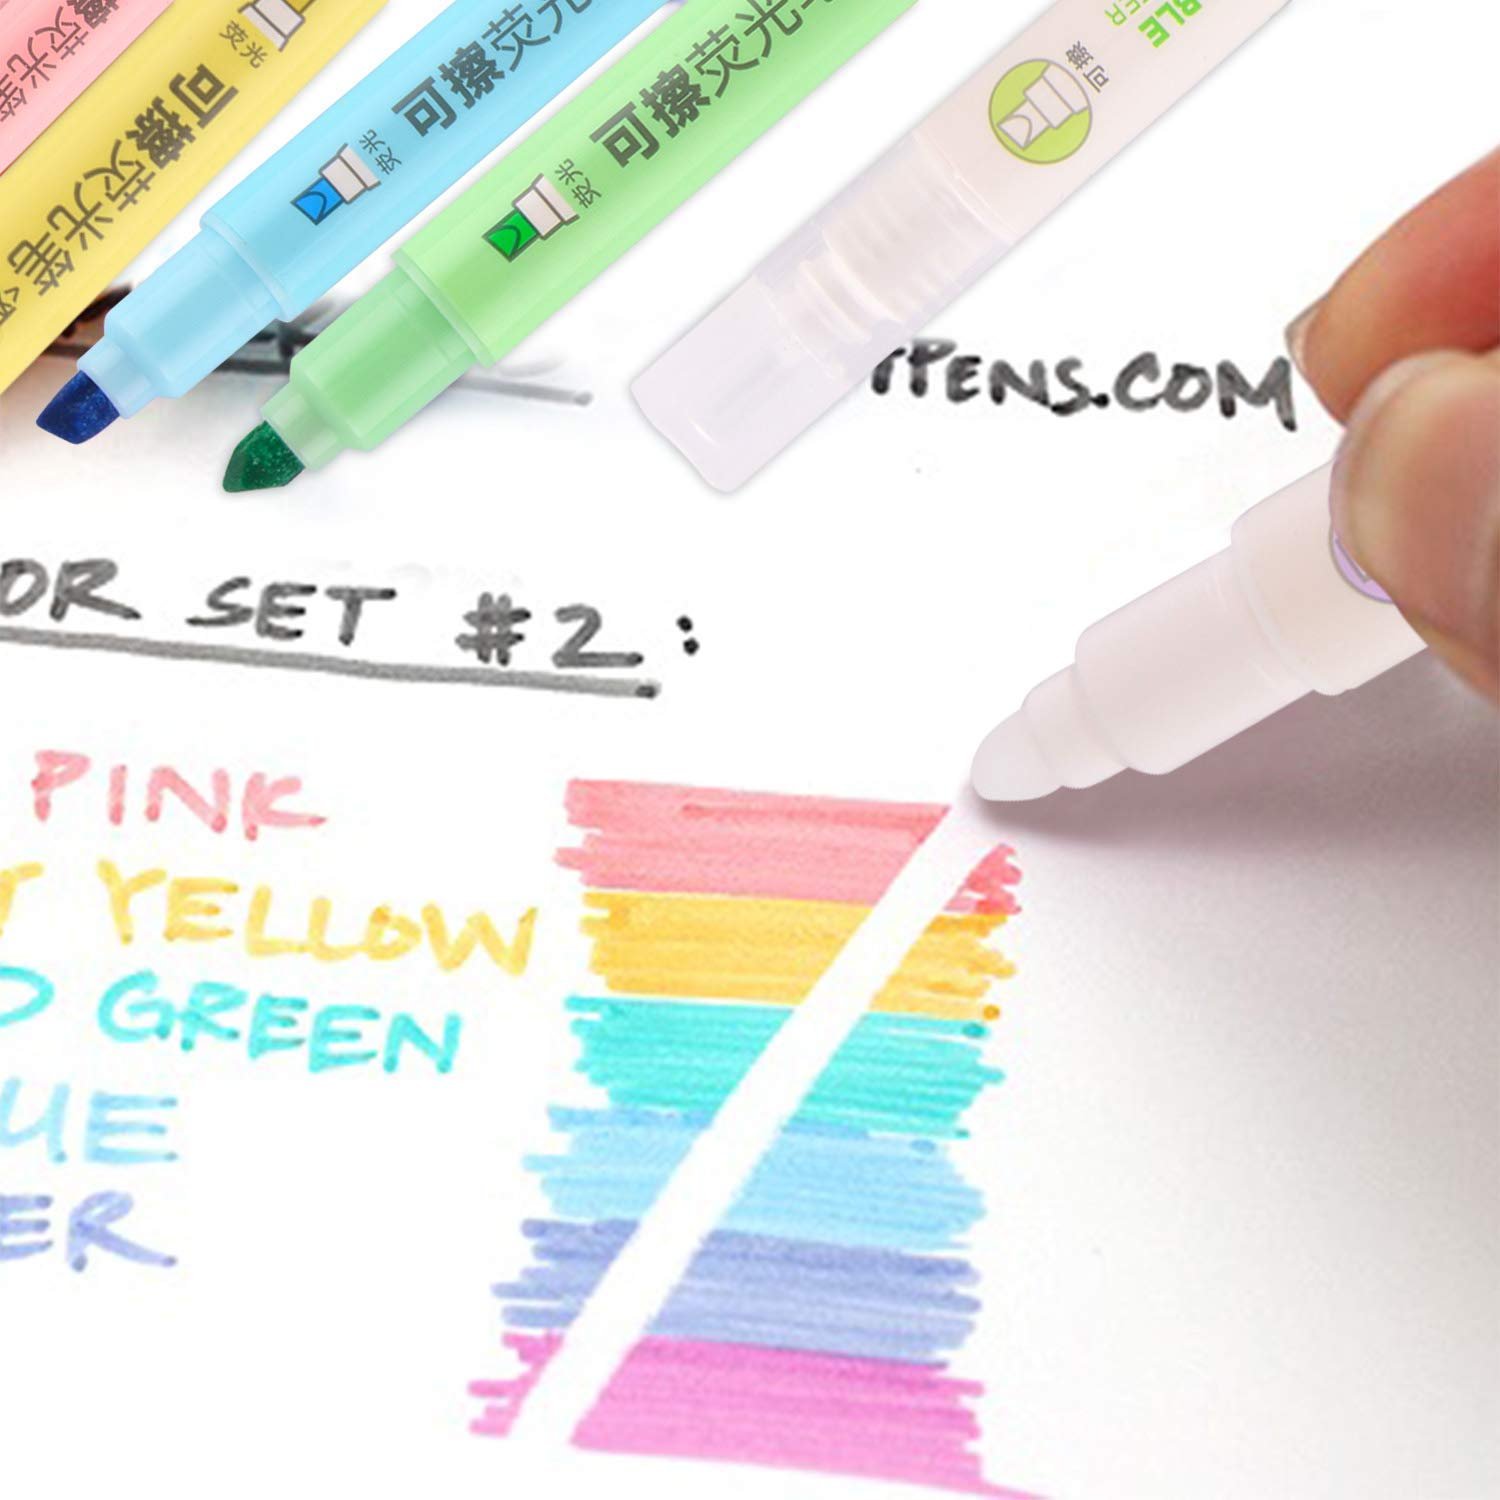 荧光笔
荧光
可擦荧光笔
荧光
可擦荧光
荧光
可擦荧光笔
可擦
TPENS.COM
OR SET #2:
PINK
YELLOW
GREEN
UE
ER